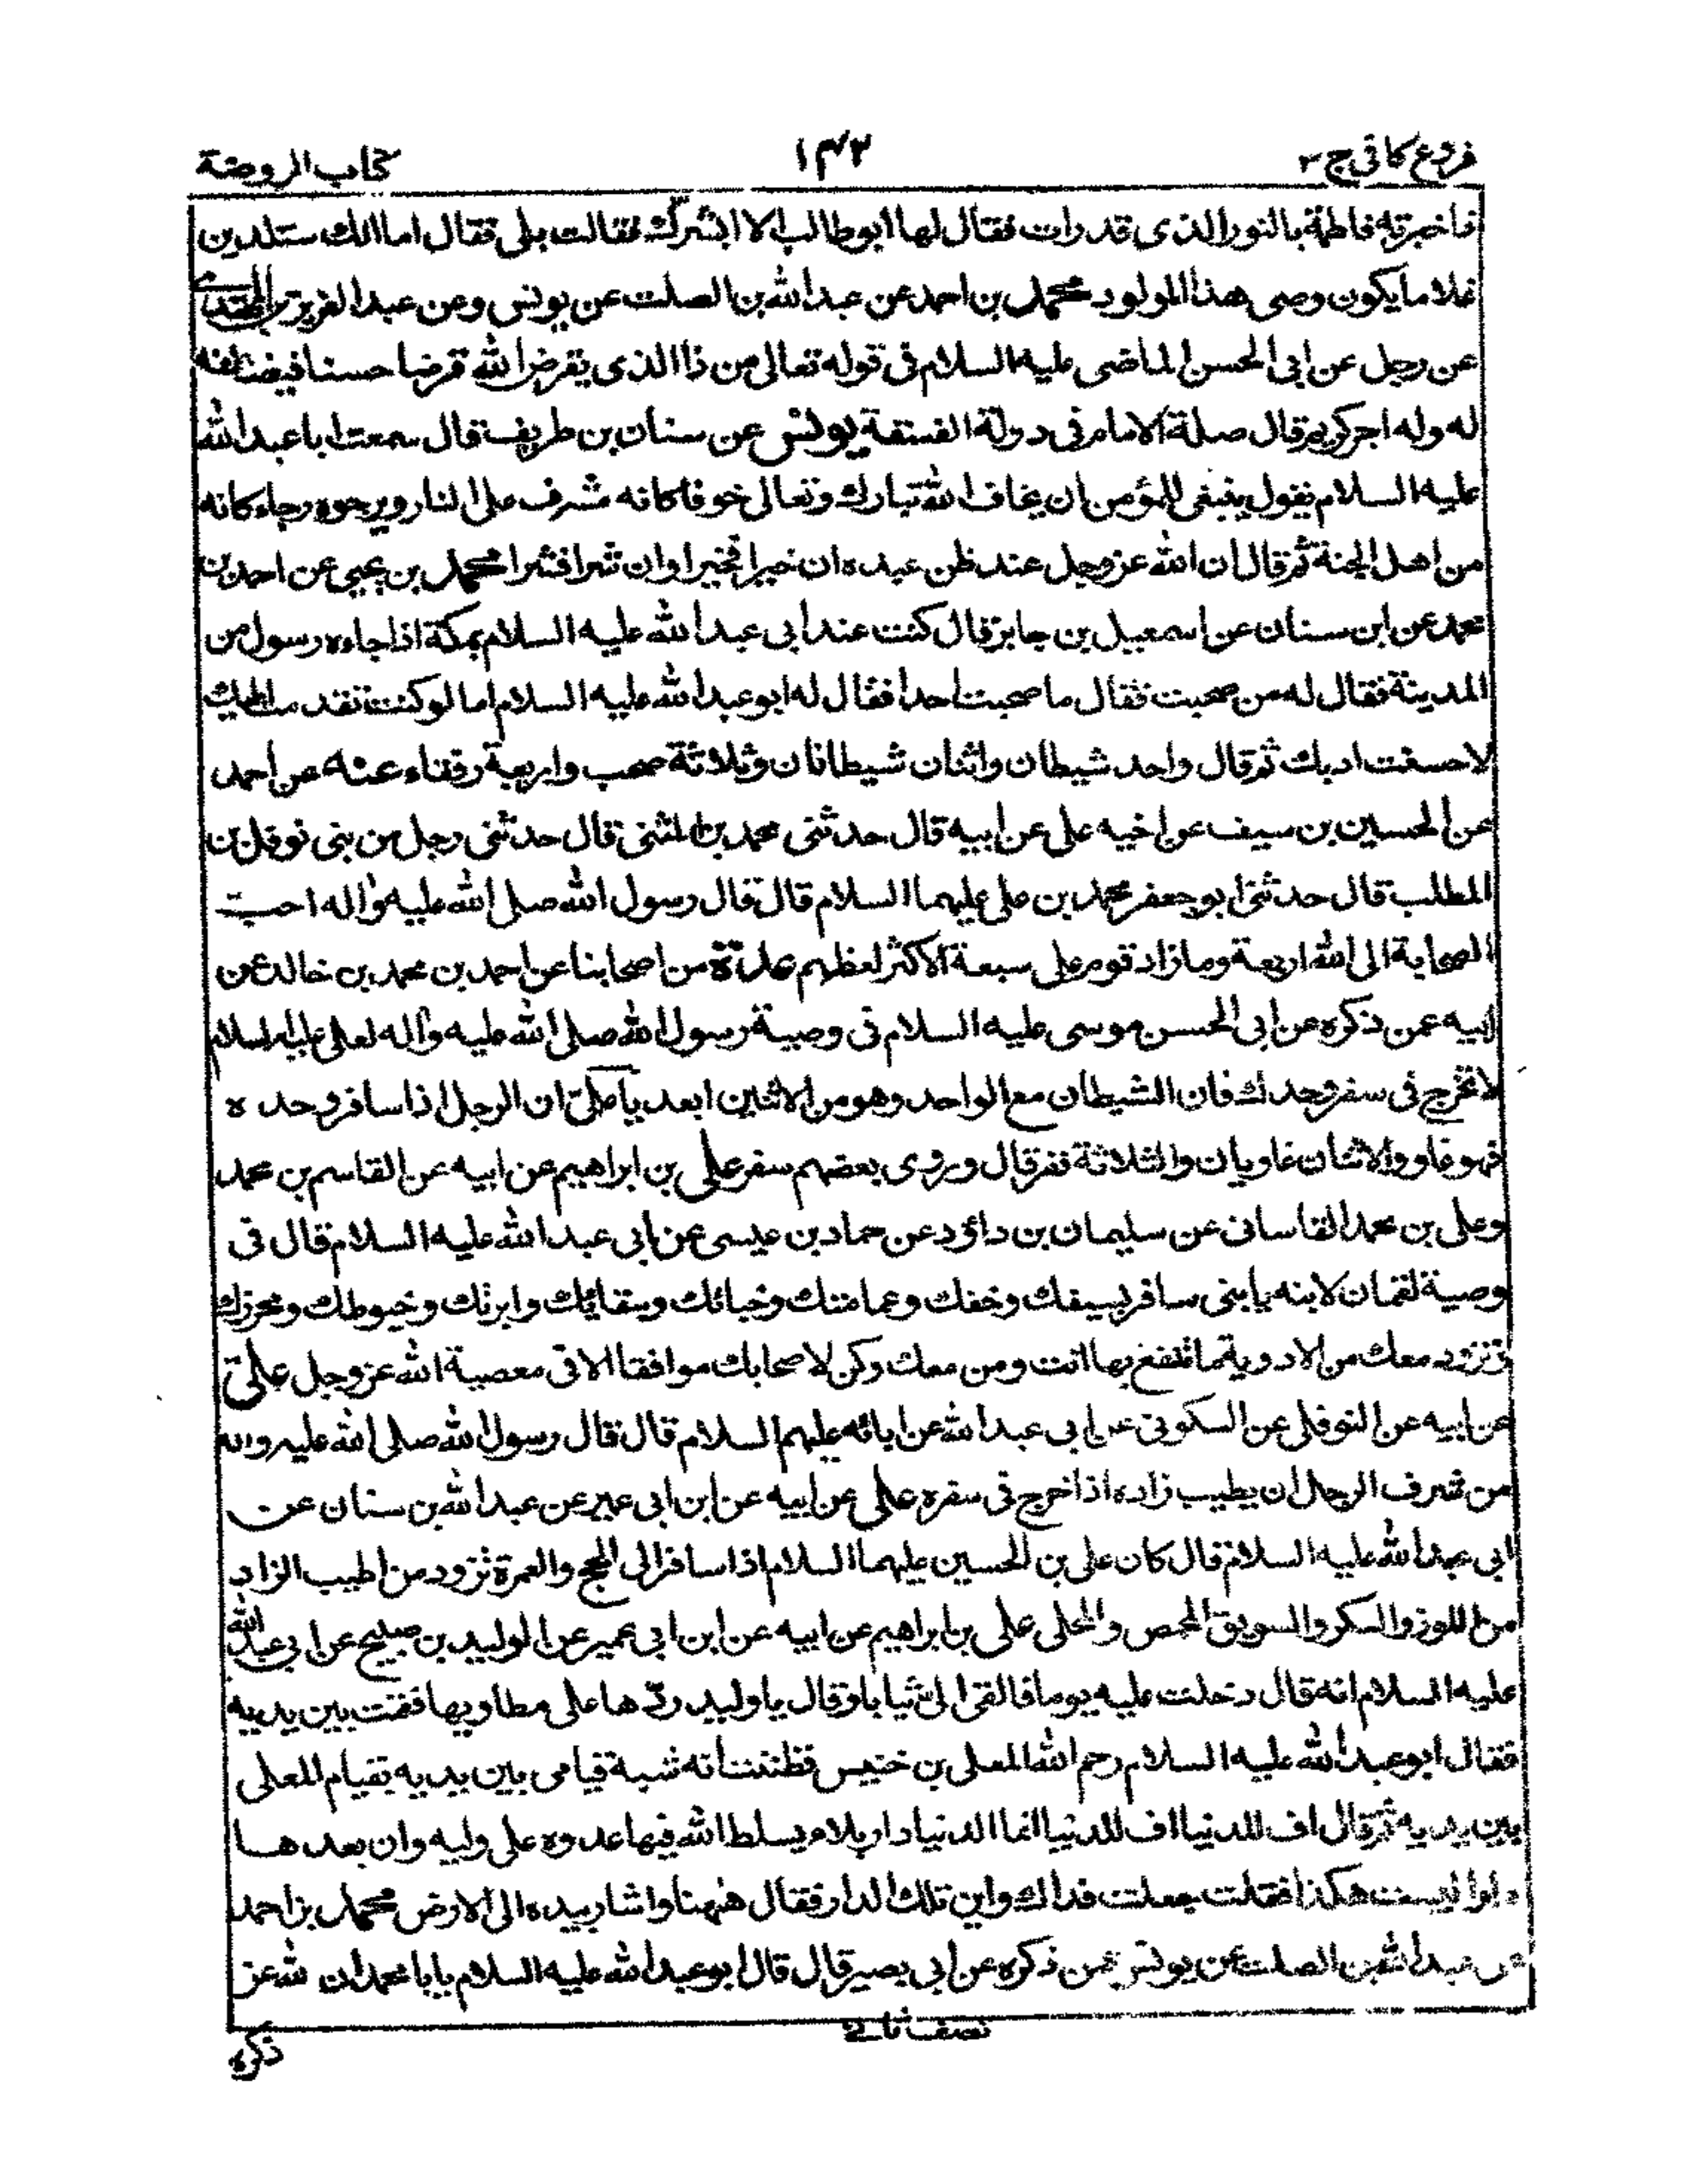 فروع كافى ج ٣
١٤٢
كتاب الروضة
فاخبرته فاطمة بالنور الذى قد رات فقال لها ابو طالب الا ابشرك فقالت بلى فقال اما انك ستلدين
غلاما يكون وصى هذا المولود محمد بن احمد عن عبد الله بن الصلت عن يونس وعن عبد العزيز بن المهتدى
عن رجل عن ابى الحسن الماضى عليه السلام فى قوله تعالى من ذا الذى يقرض الله قرضا حسنا فيضاعفه
له وله اجر كريم قال صلة الامام فى دولة الفسقة يونس عن سنان بن طريف قال سمعت ابا عبد الله
عليه السلام يقول ينبغى للمؤمن ان يخاف الله تبارك وتعالى خوفا كانه مشرف على النار ويرجوه رجاء كانه
من اهل الجنة ثم قال ان الله عز وجل عند ظن عبده ان خيرا فخيرا وان شرا فشرا محمد بن يحيى عن احمد بن
محمد عن ابن سنان عن اسمعيل بن جابر قال كنت عند ابى عبد الله عليه السلام بمكة اذا جاءه رسول من
المدينة فقال له من صحبت فقال ما صحبت احدا فقال له ابو عبد الله عليه السلام اما لو كنت تقدمت اليك
لاحسنت ادبك ثم قال واحد شيطان واثنان شيطانان وثلاثة صحب واربعة رفقاء عنه عن احمد
عن الحسين بن سيف عن اخيه على عن ابيه قال حدثنى محمد بن المثنى قال حدثنى رجل من بنى نوفل بن
المطلب قال حدثنى ابو جعفر محمد بن على عليهما السلام قال قال رسول الله صلى الله عليه واله احب
الصحابة الى الله اربعة وما زاد قوم على سبعة الا كثر لغطهم عدة من اصحابنا عن احمد بن محمد بن خالد عن
ابيه عمن ذكره عن ابى الحسن موسى عليه السلام فى وصية رسول الله صلى الله عليه وآله لعلى عليه السلام
لا تخرج فى سفر وحدك فان الشيطان مع الواحد وهو من الاثنين ابعد يا على ان الرجل اذا سافر وحده
فهو غاو والاثنان غاويان والثلاثة نفر قال وروى بعضهم سفر على بن ابراهيم عن ابيه عن القاسم بن محمد
وعلى بن محمد القاسانى عن سليمان بن داؤد عن حماد بن عيسى عن ابى عبد الله عليه السلام قال فى
وصية لقمان لابنه يا بنى سافر بسيفك وخفك وعمامتك وخبائك وسقائك وابرتك وخيوطك ومخرزك
وتزود معك من الادوية ما تنتفع بها انت ومن معك وكن لاصحابك موافقا الا فى معصية الله عز وجل على
عن ابيه عن النوفلى عن السكونى عن ابى عبد الله عن ابائه عليهم السلام قال قال رسول الله صلى الله عليه واله
من شرف الرجل ان يطيب زاده اذا خرج فى سفره على عن ابيه عن ابن ابى عمير عن عبد الله بن سنان عن
ابى عبد الله عليه السلام قال كان على بن الحسين عليهما السلام اذا سافر الى الحج والعمرة تزود من اطيب الزاد
من اللوز والسكر والسويق المحمص والمحلى على بن ابراهيم عن ابيه عن ابن ابى عمير عن الوليد بن صبيح عن ابى عبد الله
عليه السلام انه قال دخلت عليه يوما فالقى الى ثيابا وقال يا وليد ردها على مطاويها فقمت بين يديه
فقال ابو عبد الله عليه السلام رحم الله المعلى بن خنيس فظننت انه شبه قيامى بين يديه بقيام المعلى
بين يديه ثم قال اف للدنيا اف للدنيا انما الدنيا دار بلاء يسلط الله فيها عدوه على وليه وان بعدها
دارا ليست هكذا فقلت جعلت فداك واين تلك الدار فقال ههنا واشار بيده الى الارض محمد بن احمد
عن عبد الله بن الصلت عن يونس عمن ذكره عن ابى بصير قال قال ابو عبد الله عليه السلام يا با محمد ان لله عز
نصف ثانى
ذكره